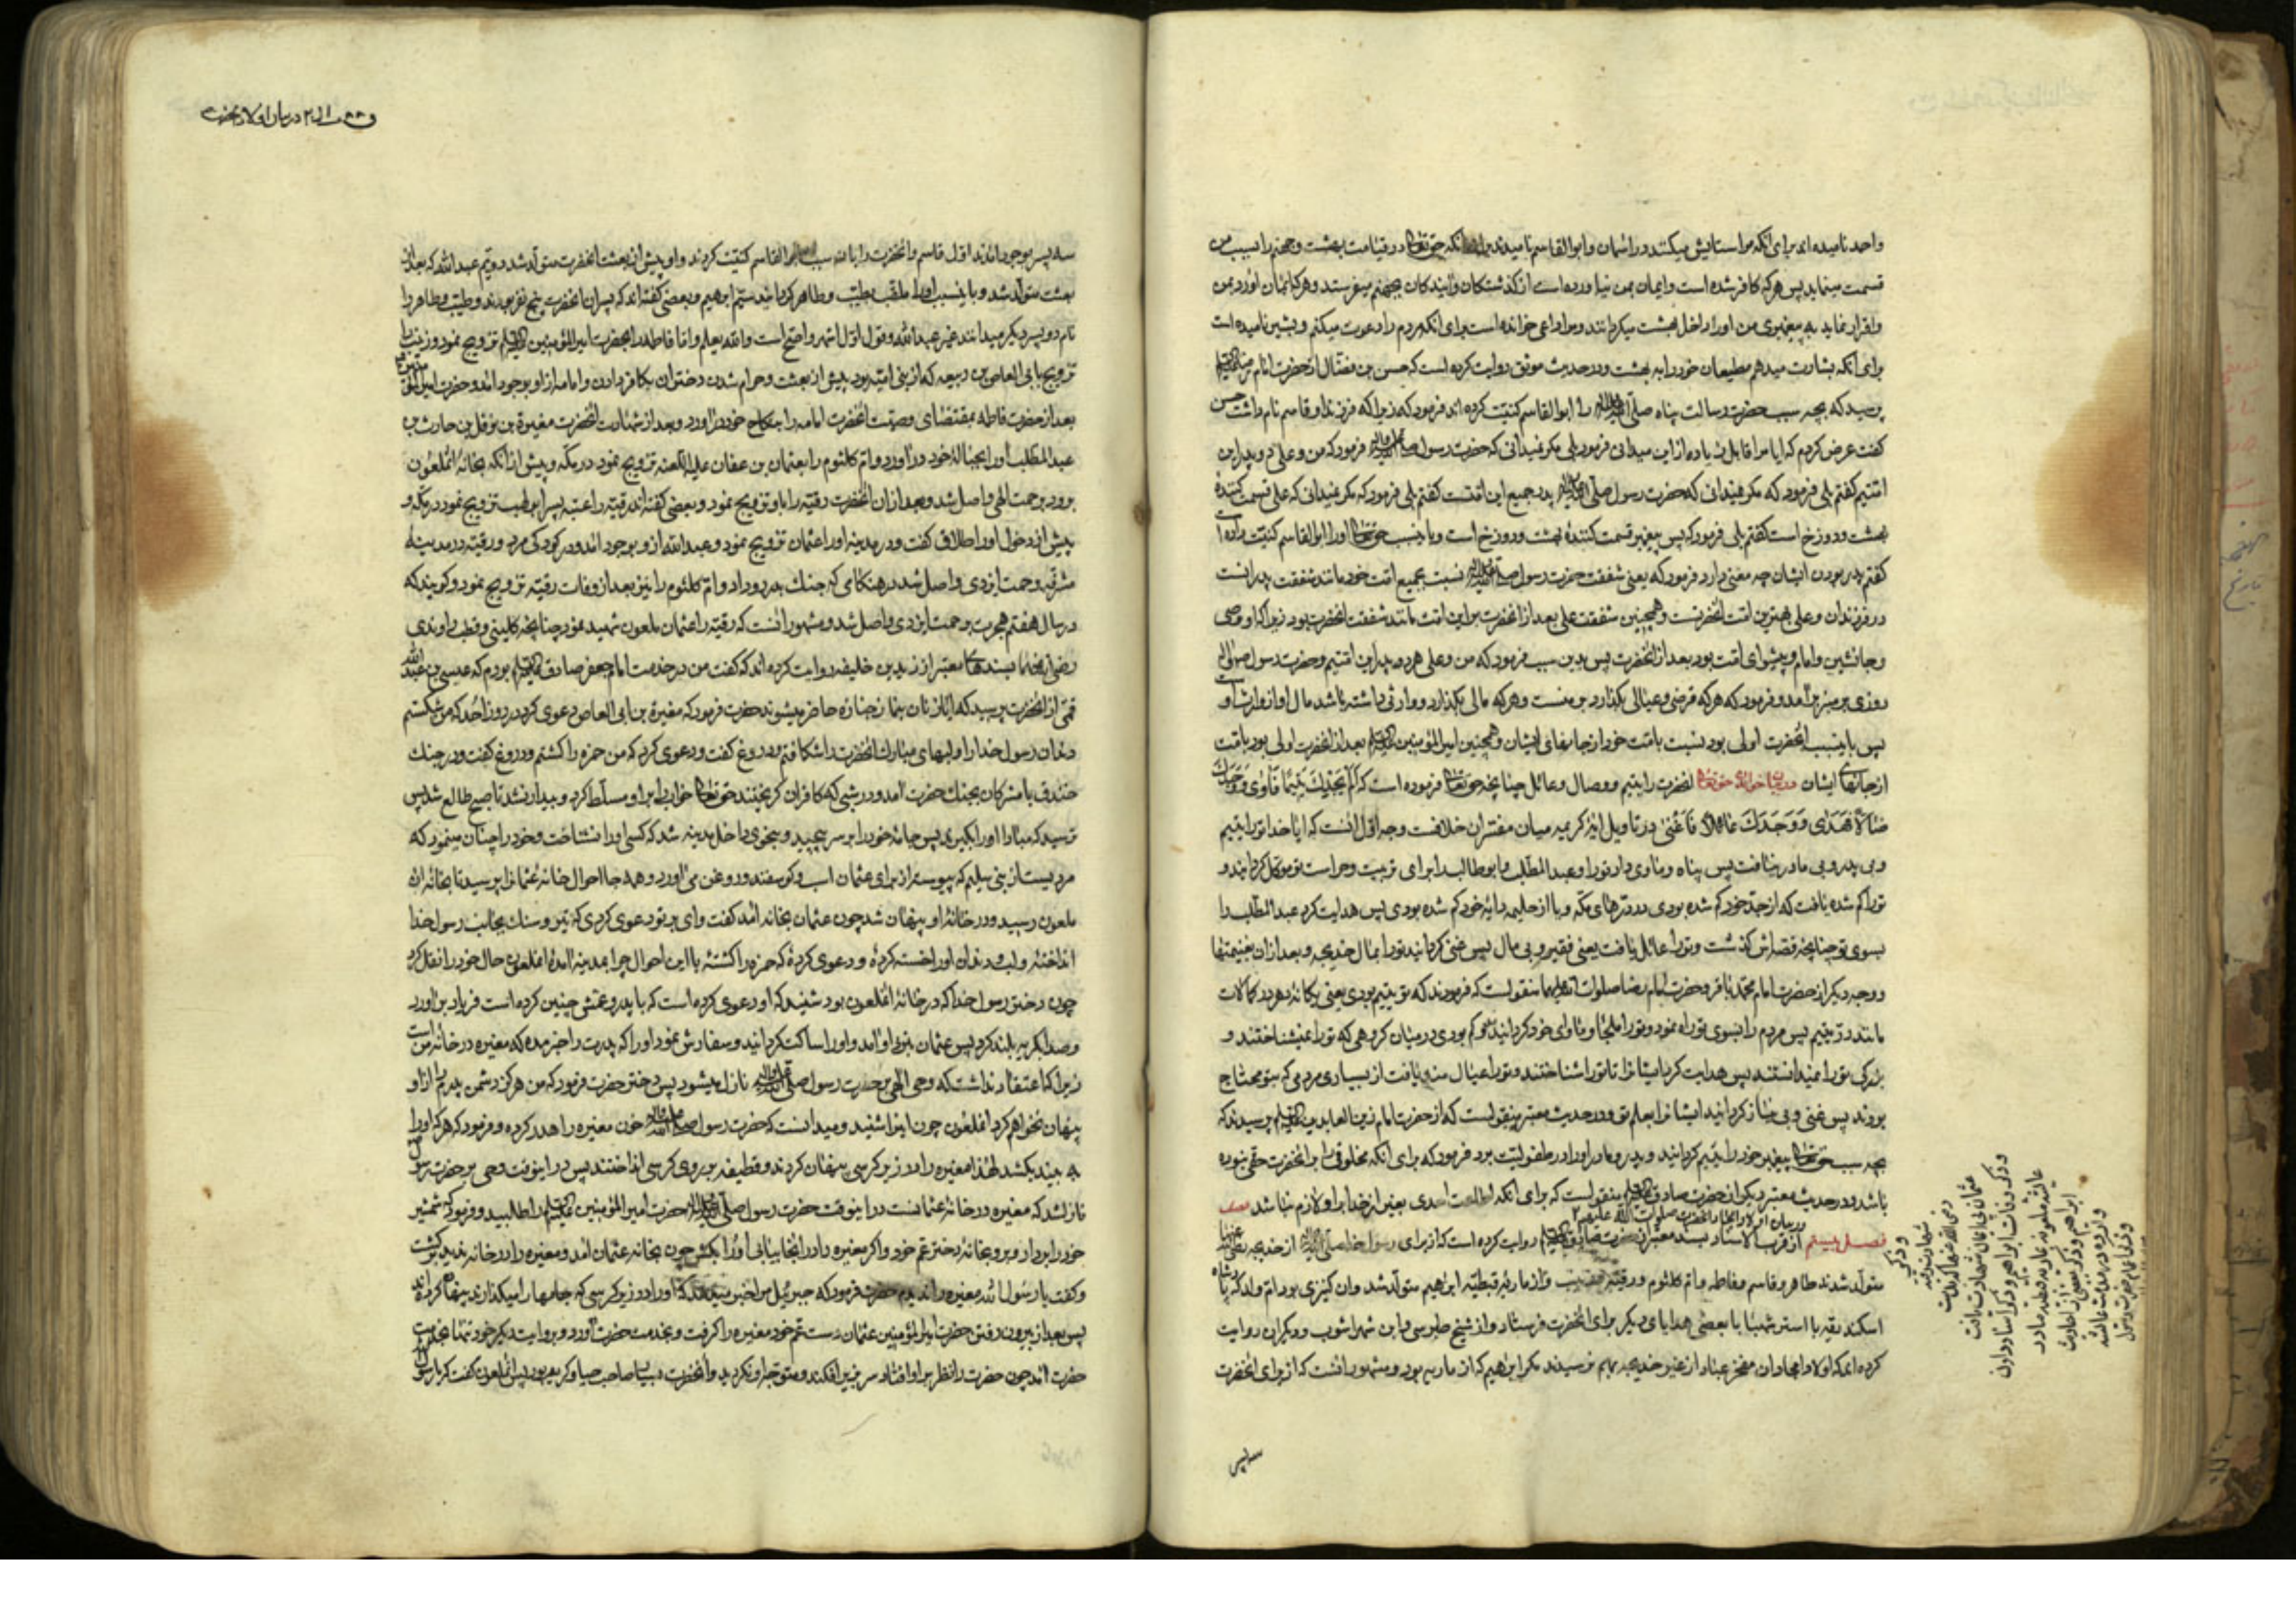 واحد نامیده اند برای انکه مرا ستایش میکنند در آسمان و ابو القاسم نامیدند برای انکه حق تعالی در قیامت بهشت و جهنم را بسبب من
قسمت مینماید پس هر که کافر شده است و ایمان بمن نیاورده است از کذشتکان و آیندکان بجهنم میفرستد و هر که ایمان آورد بمن
و اقرار نماید به پیغمبری من اورا داخل بهشت میکردانند و مرا داعی خوانده است برای انکه مردم را دعوت میکنم و بشیر نامیده است
برای انکه بشارت میدهم مطیعان خود را به بهشت و در حدیث موثق روایت کرده است که حسن بن فضّال از حضرت امام رضا
پرسید که بچه سبب حضرت رسالت پناه صلی الله علیه وآله را ابو القاسم کنیت کرده اند فرمود که زیرا که فرزند او قاسم نام داشت حسن
کفت عرض کردم که ایا مرا قابل زیاده از این میدانی فرمود بلی مکر نمیدانی که حضرت رسول فرمود که من و علی دو پدر این
امتیم کفتم بلی فرمود که مکر نمیدانی که حضرت رسول صلی الله علیه وآله پدر جمیع این امتست کفتم بلی فرمود که مکر نمیدانی که علی قسمت کنندهٔ
بهشت و دوزخ است کفتم بلی فرمود که پس پیغمبر قسمت کنندهٔ بهشت و دوزخ است و باینسبب حق تعالی اورا ابو القاسم کنیت داده است
کفتم پدر بودن ایشان چه معنی دارد فرمود که یعنی شفقت حضرت رسول نسبت بجمیع امت خود مانند شفقت پدرانست
در فرزندان و علی بهترین امت انحضرتست و همچنین شفقت علی بعد از انحضرت بر این امت مانند شفقت انحضرت بود زیرا که او وصی
و جانشین و امام و پیشوای امت بود بعد از انحضرت پس بدین سبب فرمود که من و علی هر دو پدر این امتیم و حضرت رسول
روزی بر منبر برآمد و فرمود که هر که قرضی و عیالی بکذارد بر منست و هر که مالی بکذارد و وارثی داشته باشد مال او از وارث اوست
پس باینسبب انحضرت اولی بود نسبت بامت خود از جانهای ایشان و همچنین امیر المؤمنین بعد از انحضرت اولی بود بامت
از جانهای ایشان حق تعالی انحضرت را یتیم و ضال و عائل چنانچه حق تعالی فرموده است که الم یجدك یتیما فاوی و وجدك
ضالا فهدی و وجدك عائلا فاغنی در تاویل ایه کریمه میان مفسران خلافست وجه اول انست که ایا خدا تو را یتیم
و بی پدر و بی مادر نیافت پس پناه و ماوی داد تو را و عبد المطلب و ابو طالب را برای تربیت و حراست تو موکل کردانید و
تو را کم شده یافت که از جد خود کم شده بودی در درهای مکه و یا از حلیمه دایهٔ خود کم شده بودی پس هدایت کرد عبد المطلب را
بسوی تو چنانچه قصه اش کذشت و تو را عائل یافت یعنی فقیر و بی مال پس غنی کردانید تو را بمال خدیجه و بعد از ان بغنیمتها
و وجه دیکر از حضرت امام محمد باقر و حضرت امام رضا صلوات الله علیهما منقولست که فرمودند که تو یتیم بودی یعنی یکانه دهر در کمالات
مانند در یتیم پس مردم را بسوی تو راه نمود و تو را ملجا و ماوای خود کردانید و کم بودی در میان کروهی که تو را نمیشناختند و
بزرکی تو را نمیدانستند پس هدایت کرد ایشانرا تا تو را شناختند و تو را عیال مند یافت از بسیاری مردمی که بتو محتاج
بودند پس غنی و بی نیاز کردانید ایشانرا بعلم تو و در حدیث معتبر منقولست که از حضرت امام زین العابدین پرسیدند که
بچه سبب حق تعالی پیغمبر خود را یتیم کردانید و پدر و مادر اورا در طفولیت برد فرمود که برای انکه مخلوقی را بر انحضرت حقی نبوده
باشد و در حدیث معتبر دیکر از حضرت صادق منقولست که برای انکه اطاعت احدی بغیر از خدا بر او لازم نباشد
در بیان اولاد امجاد انحضرت صلوات الله علیهم
فصل بیستم از قرب الاسناد بسند معتبر از حضرت صادق روایت کرده است که از برای رسول خدا از خدیجه
متولد شدند طاهر و قاسم و فاطمه و ام کلثوم و رقیه و زینب و از ماریهٔ قبطیه ابراهیم متولد شد و ان کنیزی بود ام ولد که پادشاه
اسکندریه با استر شهبا با بعضی هدایای دیکر برای انحضرت فرستاد و از شیخ طبرسی و ابن شهراشوب و دیکران روایت
کرده اند که اولاد امجاد ان مفخر عباد از غیر خدیجه بهم نرسیدند مکر ابراهیم که از ماریه بود و مشهور انست که از برای انحضرت
سه پسر
در بیان اولاد انحضرت
سه پسر بوجود امدند اول قاسم و انحضرت را باین سبب ابو القاسم کنیت کردند و او پیش از بعثت انحضرت متولد شد دویّم عبد الله که بعد از
بعثت متولد شد و باینسبب اورا ملقب بطیّب و طاهر کردانیدند سیّم ابراهیم و بعضی کفته اند که پسران انحضرت پنج نفر بودند و طیّب و طاهر را
نام دو پسر دیکر میدانند غیر عبد الله و قول اول اشهر و اصح است و الله یعلم و اما فاطمه را بحضرت امیر المؤمنین تزویج نمود و زینب را
تزویج بابی العاص بن ربیعه که از بنی امیه بود پیش از بعثت و حرام شدن دختران بکافر دادن و امامه از او بوجود امد و حضرت امیر المؤمنین
بعد از حضرت فاطمه بمقتضای وصیت انحضرت امامه را بنکاح خود دراورد و بعد از شهادت انحضرت مغیرة بن نوفل بن حارث بن
عبد المطلب اورا بحبالهٔ خود دراورد و ام کلثوم را بعثمان بن عفان علیه اللعنه تزویج نمود در مکه و پیش از انکه بخانهٔ انملعون
برود برحمت الهی واصل شد و بعد از ان انحضرت رقیه را باو تزویج نمود و بعضی کفته اند رقیه را عتبه پسر ابو لهب تزویج نمود در مکه و
پیش از دخول اورا طلاق کفت و در مدینه اورا عثمان تزویج نمود و عبد الله از او بوجود امد و در کودکی مرد و رقیه در مدینه
مشرفه برحمت ایزدی واصل شد در هنکامی که جنك بدر رو داد و ام کلثوم را نیز بعد از وفات رقیه تزویج نمود و کویند که
در سال هفتم هجرت برحمت ایزدی واصل شد و مشهور انست که رقیه را عثمان ملعون شهید نمود چنانچه کلینی و قطب راوندی
بسندهای معتبر از زید بن خلیفه روایت کرده اند که کفت من در خدمت امام جعفر صادق بودم که عیسی بن عبد الله
قمی از انحضرت پرسید که ایا زنان بنماز جنازه حاضر میشوند حضرت فرمود که مغیرة بن ابی العاص دعوی کرد در روز احد که من شکستم
دندان رسول خدا را و لبهای مبارك انحضرت را شکافتم و دروغ کفت و دعوی کرد که من حمزه را کشتم و دروغ کفت و در جنك
خندق با مشرکان بجنك حضرت امد و در شبی که کافران کریختند حق تعالی خواب را بر او مسلط کرد و بیدار نشد تا صبح طالع شد پس
ترسید که مبادا اورا بکیرند پس جامهٔ خود را بر سر پیچید و بنحوی داخل مدینه شد که کسی اورا نشناخت و خود را چنان مینمود که
مردیست از بنی سلیم که پیوسته از برای عثمان اسب و کوسفند و روغن می اورد و همه جا احوال خانهٔ عثمانرا پرسید تا بخانهٔ ان
ملعون رسید و در خانهٔ او پنهان شد چون عثمان بخانه امد کفت وای بر تو دعوی کردی که تیر و سنك بجانب رسول خدا
انداختهٔ و لب و دندان اورا خسته کردهٔ و دعوی کردهٔ که حمزه را کشتهٔ با این احوال چرا بمدینه امدهٔ انملعون حال خود را نقل کرد
چون دختر رسول خدا که در خانهٔ انملعون بود شنید که او دعوی کرده است که با پدر و عمش چنین کرده است فریاد براورد
و صدا بکریه بلند کرد پس عثمان بنزد او امد و اورا ساکت کردانید و سفارش نمود اورا که پدرت را خبر مده که مغیره در خانهٔ من است
زیرا که اعتقاد نداشت که وحی الهی بر حضرت رسول نازل میشود پس دختر حضرت فرمود که من هرکز دشمن پدرم را از او
پنهان نخواهم کرد انملعون چون اینرا شنید و میدانست که حضرت رسول خون مغیره را هدر کرده و فرمود که هر که اورا
به بیند بکشد لهذا مغیره را در زیر کرسی پنهان کردند و قطیفه بر روی کرسی انداختند پس در اینوقت وحی بر حضرت رسول
نازلشد که مغیره در خانهٔ عثمانست در اینوقت حضرت رسول حضرت امیر المؤمنین را طلبید و فرمود که شمشیر
خود را بردار و برو بخانهٔ دختر عم خود و اکر مغیره را در انجا بیابی اورا بکش چون بخانه عثمان امد و مغیره را در خانه ندید برکشت
و کفت یا رسول الله مغیره را ندیدم حضرت فرمود که جبرئیل مرا خبر میدهد که اورا در زیر کرسی که جامها را میکذارند پنهان کرده اند
پس بعد از بیرون رفتن حضرت امیر المؤمنین عثمان دست عم خود مغیره را کرفت و بخدمت حضرت آورد و بروایت دیکر خود تنها بخدمت
حضرت امد چون حضرت را نظر بر او افتاد سر بزیر افکند و متوجه او نکردید و انحضرت بسیار صاحب حیا و کریم بود پس انملعون کفت که یا رسول الله